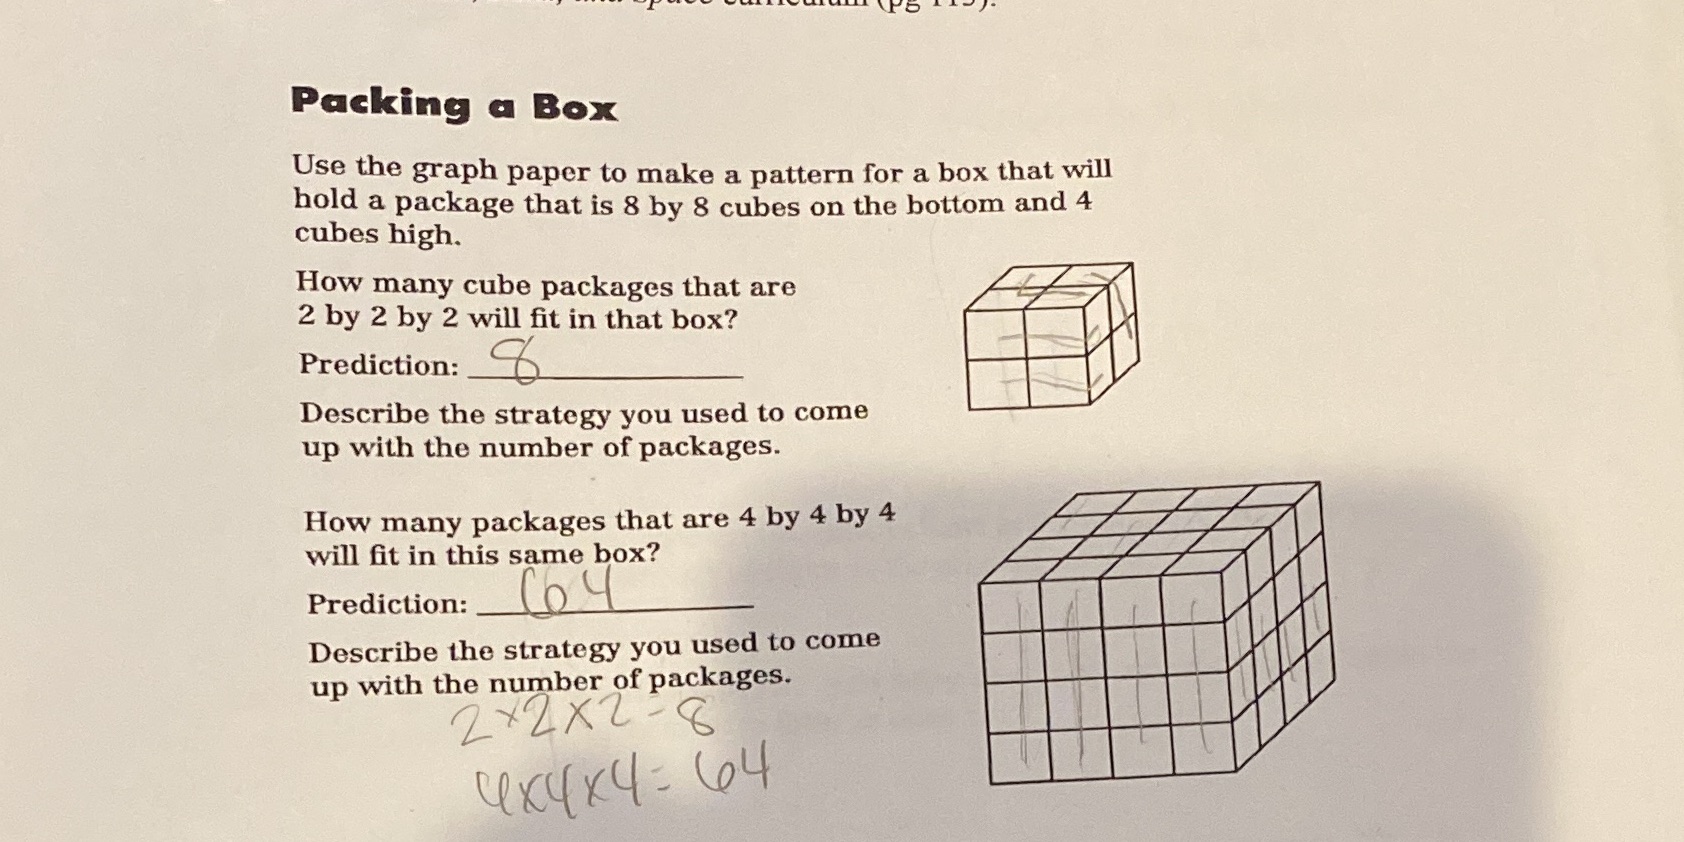 (pg 119).
Packing a Box
Use the graph paper to make a pattern for a box that will
hold a package that is 8 by 8 cubes on the bottom and 4
cubes high.
How many cube packages that are
2 by 2 by 2 will fit in that box?
Prediction: 8
Describe the strategy you used to come
up with the number of packages.
How many packages that are 4 by 4 by 4
will fit in this same box?
Prediction: 64
Describe the strategy you used to come
up with the number of packages.
2×2×2=8
4×4×4=64